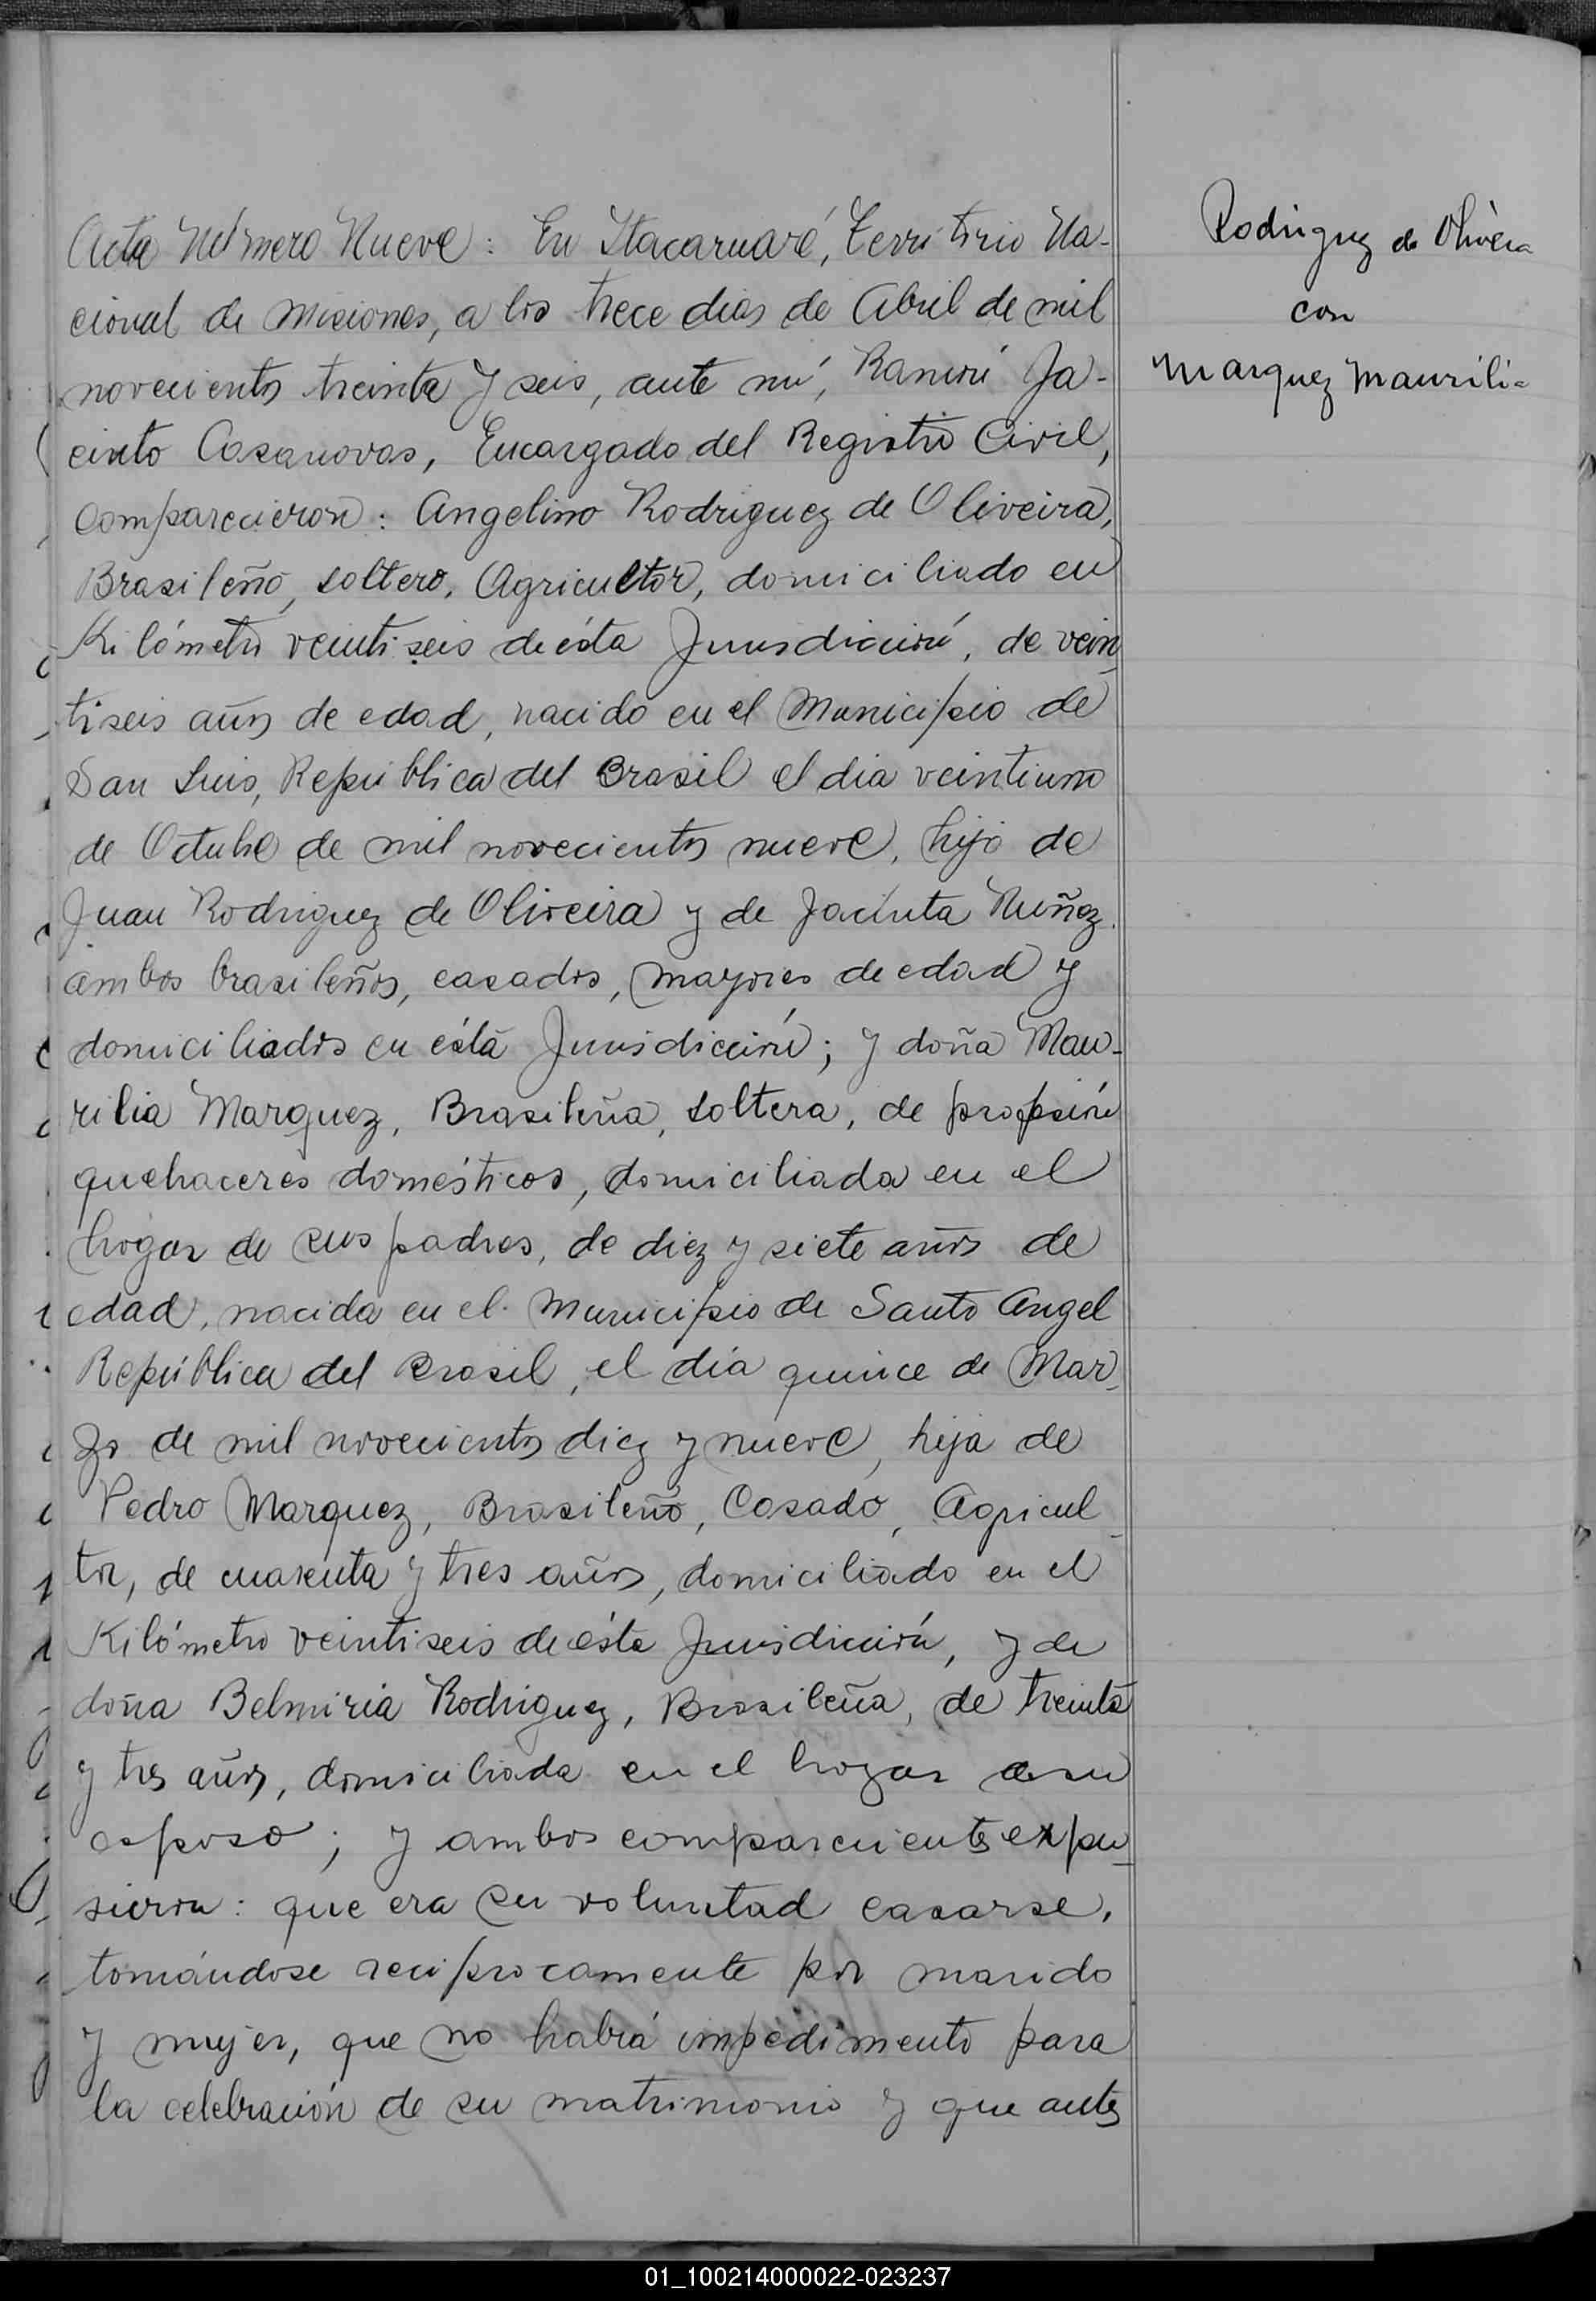 Acta Número Nueve: En Itacaruaré, Territorio Na-
cional de Misiones, a los trece dias de Abril de mil
novecientos treinta y seis, ante mí, Ramón Ja-
cinto Casanovas, Encargado del Registro Civil,
comparecieron: Angelino Rodriguez de Oliveira,
Brasileño, soltero, Agricultor, domiciliado en
Kilómetro veintiseis de ésta Jurisdicción, de vein
tiseis años de edad, nacido en el Municipio de
San Luis, República del Brasil el dia veintiuno
de Octubre de mil novecientos nueve, hijo de
Juan Rodriguez de Oliveira y de Jacinta Nuñez
ambos brasileños, casados, mayores de edad y
domiciliados en ésta Jurisdicción; y doña Mau-
rilia Marquez, Brasileña, soltera, de profesión
quehaceres domésticos, domiciliada en el
hogar de sus padres, de diez y siete años de
edad, nacida en el Municipio de Santo Angel
República del Brasil, el día quince de Mar-
zo de mil novecientos diez y nueve, hija de
Pedro Marquez, Brasileño, Casado, Agricul-
tor, de cuarenta y tres años, domiciliado en el
Kilómetro veintiseis de ésta Jurisdicción, y de
doña Belmiria Rodriguez, Brasileña, de treinta
y tres años, domiciliada en el hogar de su
esposo; y ambos comparecientes expu-
sieron: que era su voluntad casarse,
tomándose recíprocamente por marido
y mujer, que no habrá impedimento para
la celebración de su matrimonio y que antes
Rodriguez de Olivera
con
Marquez Maurilia
01_100214000022-023237